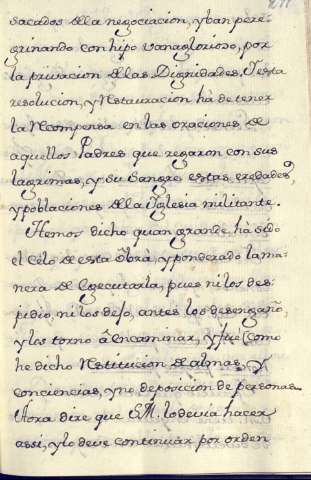 sacados de la negociacion, yban pere-
grinando con hipo vanaglorioso, por
la privacion de las Dignidades, y esta
resolucion, y Restauracion hà de tener
la Recompensa en las oraciones de
aquellos Padres que regaron con sus
lagrimas, y su Sangre estas eredades,
y poblaciones de la Iglesia militante.
Hemos dicho quan grande hà sido
el Célo de esta òbra, y ponderado la ma-
nera de Egecutarla, pues ni los des-
pidio, ni los dejo, antes los desengañò,
y los torno à Encaminar, y fuè como
he dicho Restitucion de almas, y
conciencias, y no deposicion de personas.
Aora dire que S.M. lo devia hacer
assi, y lo deve continuar por orden